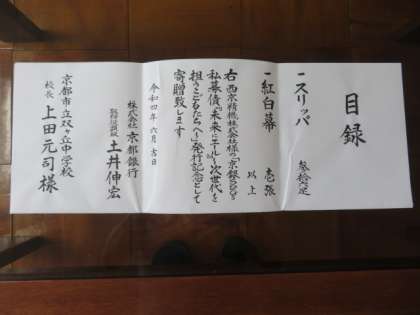 目録
一 スリッパ 参拾足
一 紅白幕 壱張
以上
右 西京精機株式会社様の「京銀SDGs
私募債『未来にエール』~次世代を
担う こどもたちへ~」発行記念として
寄贈致します
令和四年 六月 吉日
株式会社 京都銀行
取締役頭取 土井 伸宏
京都市立双ヶ丘中学校
校長 上田 元司 様